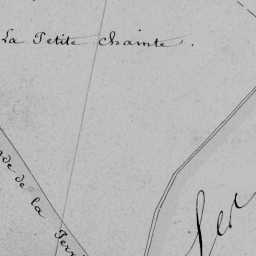 La Petite Chainte.
de de la Ferr
Ler